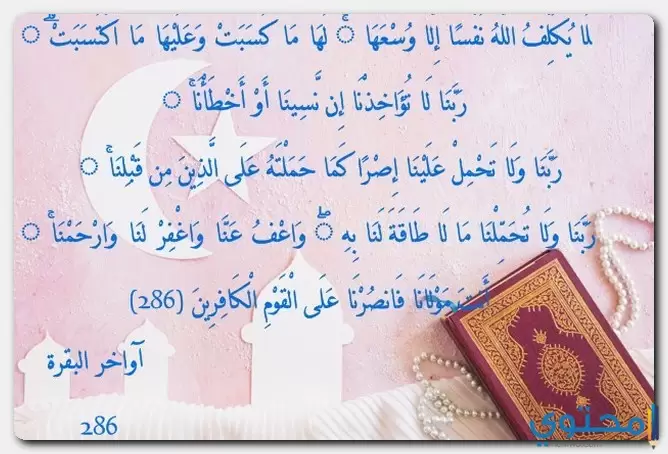 لَا يُكَلِّفُ اللَّهُ نَفْسًا إِلَّا وُسْعَهَا ۚ لَهَا مَا كَسَبَتْ وَعَلَيْهَا مَا اكْتَسَبَتْ ۗ
رَبَّنَا لَا تُؤَاخِذْنَا إِن نَّسِينَا أَوْ أَخْطَأْنَا ۚ
رَبَّنَا وَلَا تَحْمِلْ عَلَيْنَا إِصْرًا كَمَا حَمَلْتَهُ عَلَى الَّذِينَ مِن قَبْلِنَا ۚ
رَبَّنَا وَلَا تُحَمِّلْنَا مَا لَا طَاقَةَ لَنَا بِهِ ۖ وَاعْفُ عَنَّا وَاغْفِرْ لَنَا وَارْحَمْنَا ۚ
أَنتَ مَوْلَانَا فَانصُرْنَا عَلَى الْقَوْمِ الْكَافِرِينَ (286)
آواخر البقرة
286
محتوي